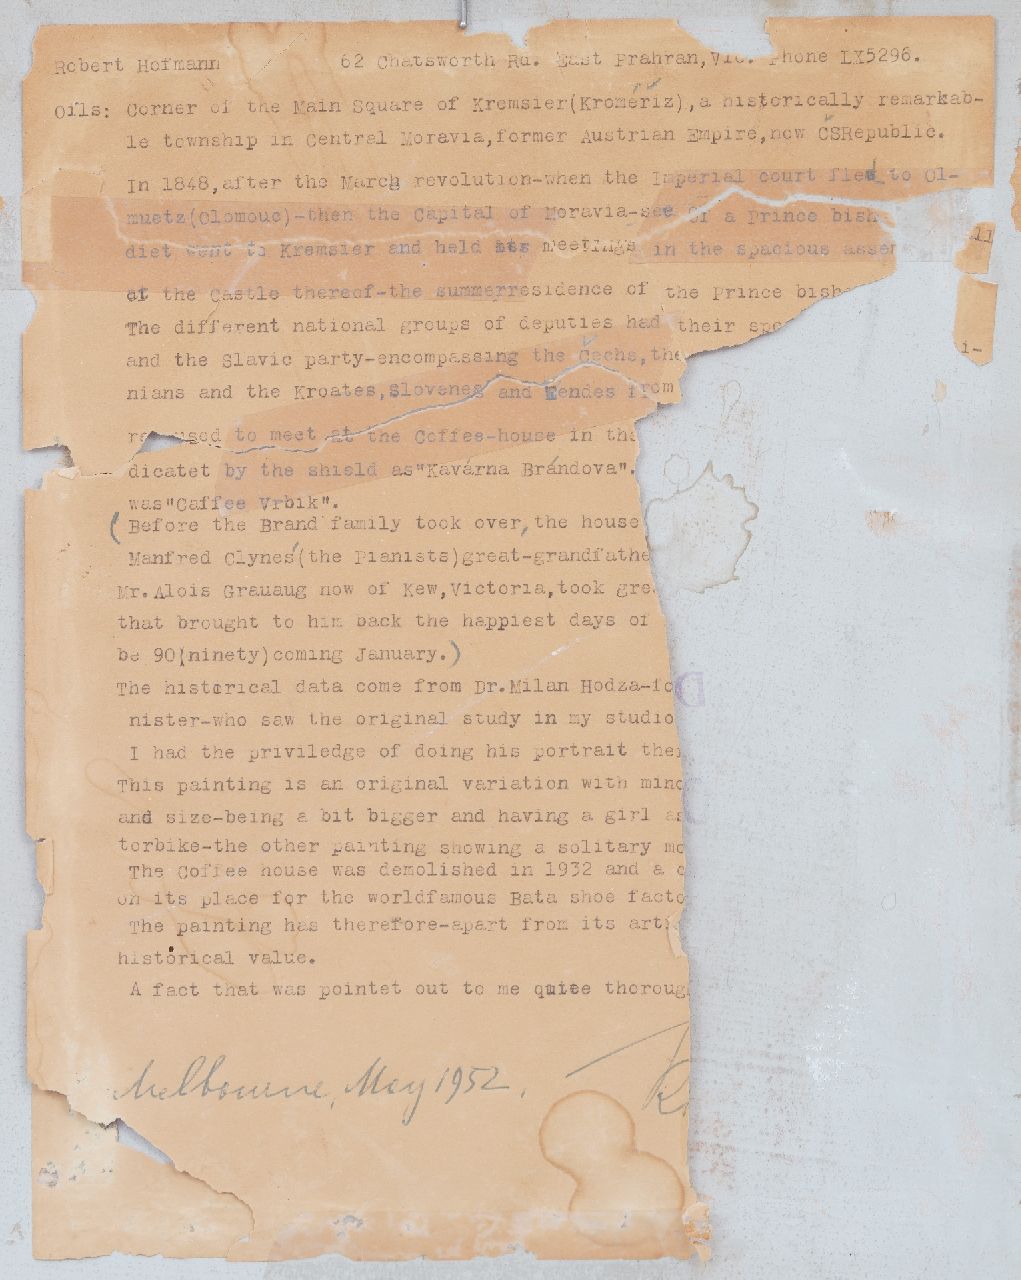 Robert Hofmann 62 Chatsworth Rd. East Prahran, Vic. Phone LX5296.
Oils: Corner of the Main Square of Kremsier(Kroměříz),a historically remarkab-
le township in Central Moravia,former Austrian Empire,now ČSRepublic.
In 1848,after the March revolution-when the Imperial court fled to Ol-
muetz(Olomouc)-then the Capital of Moravia-see of a Prince bish
diet went to Kremsier and held its meetings in the spacious assem
ll
at the Castle thereof-the summerresidence of the Prince bish
The different national groups of deputies had their spe
and the Slavic party-encompassing the Čechs,the
i-
nians and the Kroates,Slovenes and Wendes from
used to meet at the Coffee-house in the
dicatet by the shield as"Kavárna Brándova".
was"Caffee Vrbik".
(Before the Brand family took over,the house
Manfred Clynes'(the Pianists)great-grandfathe
Mr.Alois Grauaug now of Kew,Victoria,took gre
that brought to him back the happiest days of
be 90(ninety)coming January.)
The historical data come from Dr.Milan Hodza-fo
D
nister-who saw the original study in my studio
I had the priviledge of doing his portrait the
This painting is an original variation with mino
and size-being a bit bigger and having a girl as
torbike-the other painting showing a solitary mo
The Coffee house was demolished in 1932 and a
on its place for the worldfamous Bata shoe facto
The painting has therefore-apart from its art
historical value.
A fact that was pointet out to me quite thoroug
Melbourne, May 1952. R